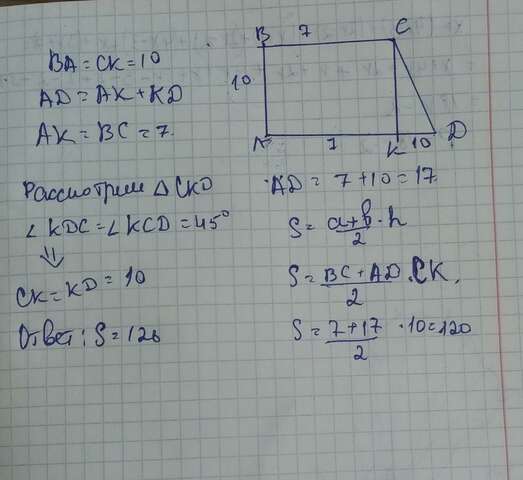 BA = CK = 10
AD = AK + KD
AK = BC = 7.
B 7 C
10
A 7 K 10 D
Рассмотрим △ CKD
∠KDC = ∠KCD = 45°
⇓
CK = KD = 10
Ответ: S = 120
AD = 7 + 10 = 17
S = a+b/2 · h
S = BC + AD/2 · CK.
S = 7 + 17/2 · 10 = 120